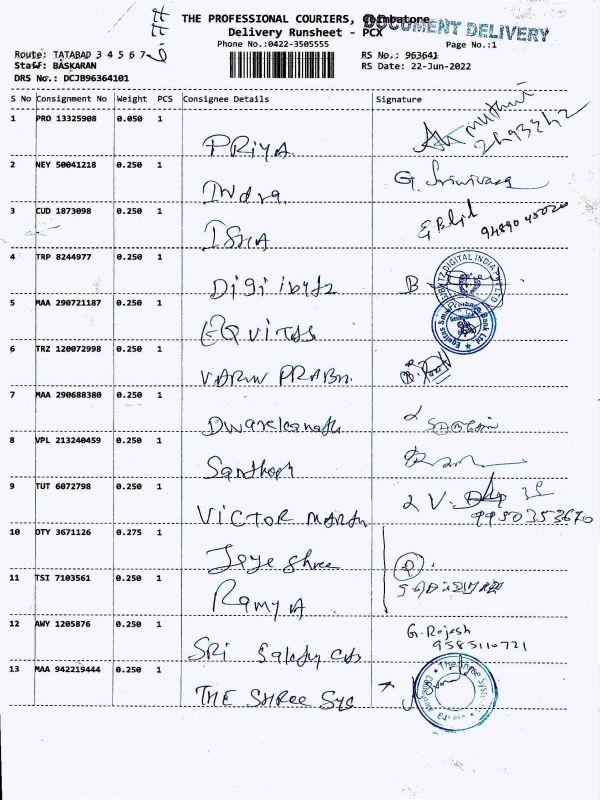 THE PROFESSIONAL COURIERS, Coimbatore
DOCUMENT DELIVERY
Delivery Runsheet - PCX
Phone No.:0422-3505555
Page No.:1
Route: TATABAD 3 4 5 6 7
RS No.: 963641
Staff: BASKARAN
RS Date: 22-Jun-2022
DRS No.: DCJB96364101
S No Consignment No Weight PCS Consignee Details Signature
1 PRO 13325908 0.050 1 PRIYA.
2 NEY 50041218 0.250 1 Indra. G. Srinivasa
3 CUD 1873098 0.250 1 ISHA
4 TRP 8244977 0.250 1 Digi ibytz B
5 MAA 290721187 0.250 1 EQVITAS
6 TRZ 120072998 0.250 1 VARUN PRABU.
7 MAA 290688380 0.250 1 Dwarekanath
8 VPL 213240459 0.250 1 Santhosh
9 TUT 6072798 0.250 1 VICTOR
10 OTY 3671126 0.275 1 Jeye Shree
11 TSI 7103561 0.250 1 Ramya
12 AWY 1205876 0.250 1 SRI G. Rajesh
9585110721
13 MAA 942219444 0.250 1 THE SHREE SYS